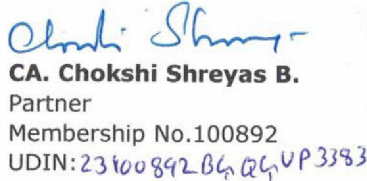 Chokshi Shreyas
CA. Chokshi Shreyas B.
Partner
Membership No.100892
UDIN:23100892BGQGVP3383